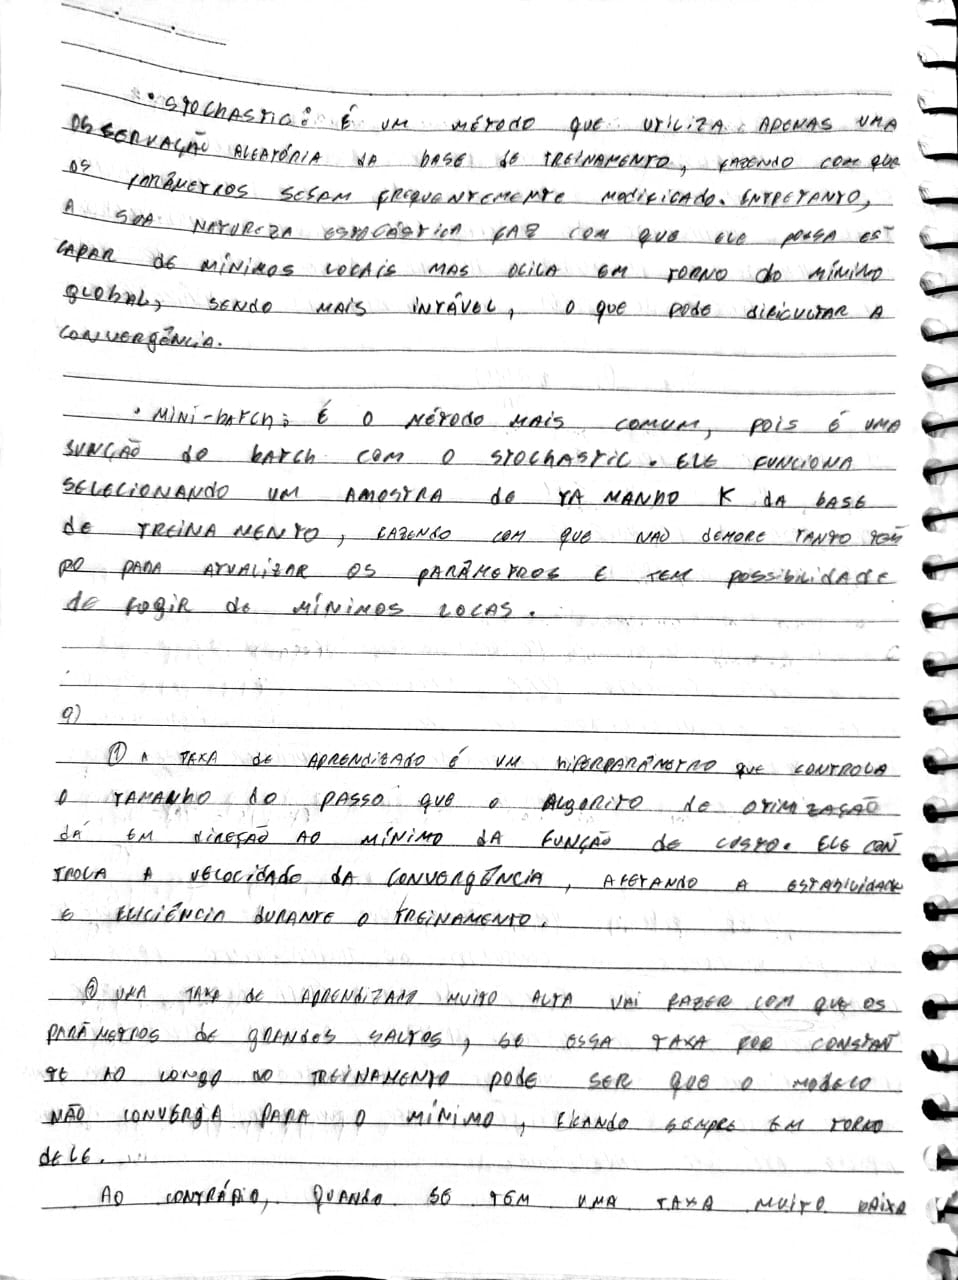 • STOCHASTIC: É UM MÉTODO QUE UTILIZA APENAS UMA
OBSERVAÇÃO ALEATÓRIA DA BASE DE TREINAMENTO, FAZENDO COM QUE
OS PARÂMETROS SEJAM FREQUENTEMENTE MODIFICADO. ENTRETANTO,
A SUA NATUREZA ESTOCÁSTICA FAZ COM QUE ELE POSSA ES
CAPAR DE MÍNIMOS LOCAIS MAS OCILA EM TORNO DO MÍNIMO
GLOBAL, SENDO MAIS INTÁVEL, O QUE PODE DIFICULTAR A
CONVERGÊNCIA.
• MINI-BATCH: É O MÉTODO MAIS COMUM, POIS É UMA
JUNÇÃO DO BATCH COM O STOCHASTIC. ELE FUNCIONA
SELECIONANDO UM AMOSTRA DE TAMANHO K DA BASE
DE TREINAMENTO, FAZENDO COM QUE NÃO DEMORE TANTO TEM
PO PARA ATUALIZAR OS PARÂMETROS E TEM POSSIBILIDADE
DE FUGIR DE MÍNIMOS LOCAS.
9)
① A TAXA DE APRENDIZADO É UM HIPERPARÂMETRO QUE CONTROLA
O TAMANHO DO PASSO QUE O ALGORITO DE OTIMIZAÇÃO
DÁ EM DIREÇÃO AO MÍNIMO DA FUNÇÃO DE CUSTO. ELE CON
TROLA A VELOCIDADO DA CONVERGÊNCIA, AFETANDO A ESTABILIDADE
E EFICIÊNCIA DURANTE O TREINAMENTO.
② UMA TAXA DE APRENDIZADO MUITO ALTA VAI FAZER COM QUE OS
PARÂMETROS DE GRANDES SALTOS, SE ESSA TAXA FOR CONSTAN
TE AO LONGO DO TREINAMENTO PODE SER QUE O MODELO
NÃO CONVERGA PARA O MÍNIMO, FICANDO SEMPRE EM TORNO
DELE.
AO CONTRÁRIO, QUANDO SE TEM UMA TAXA MUITO BAIXA